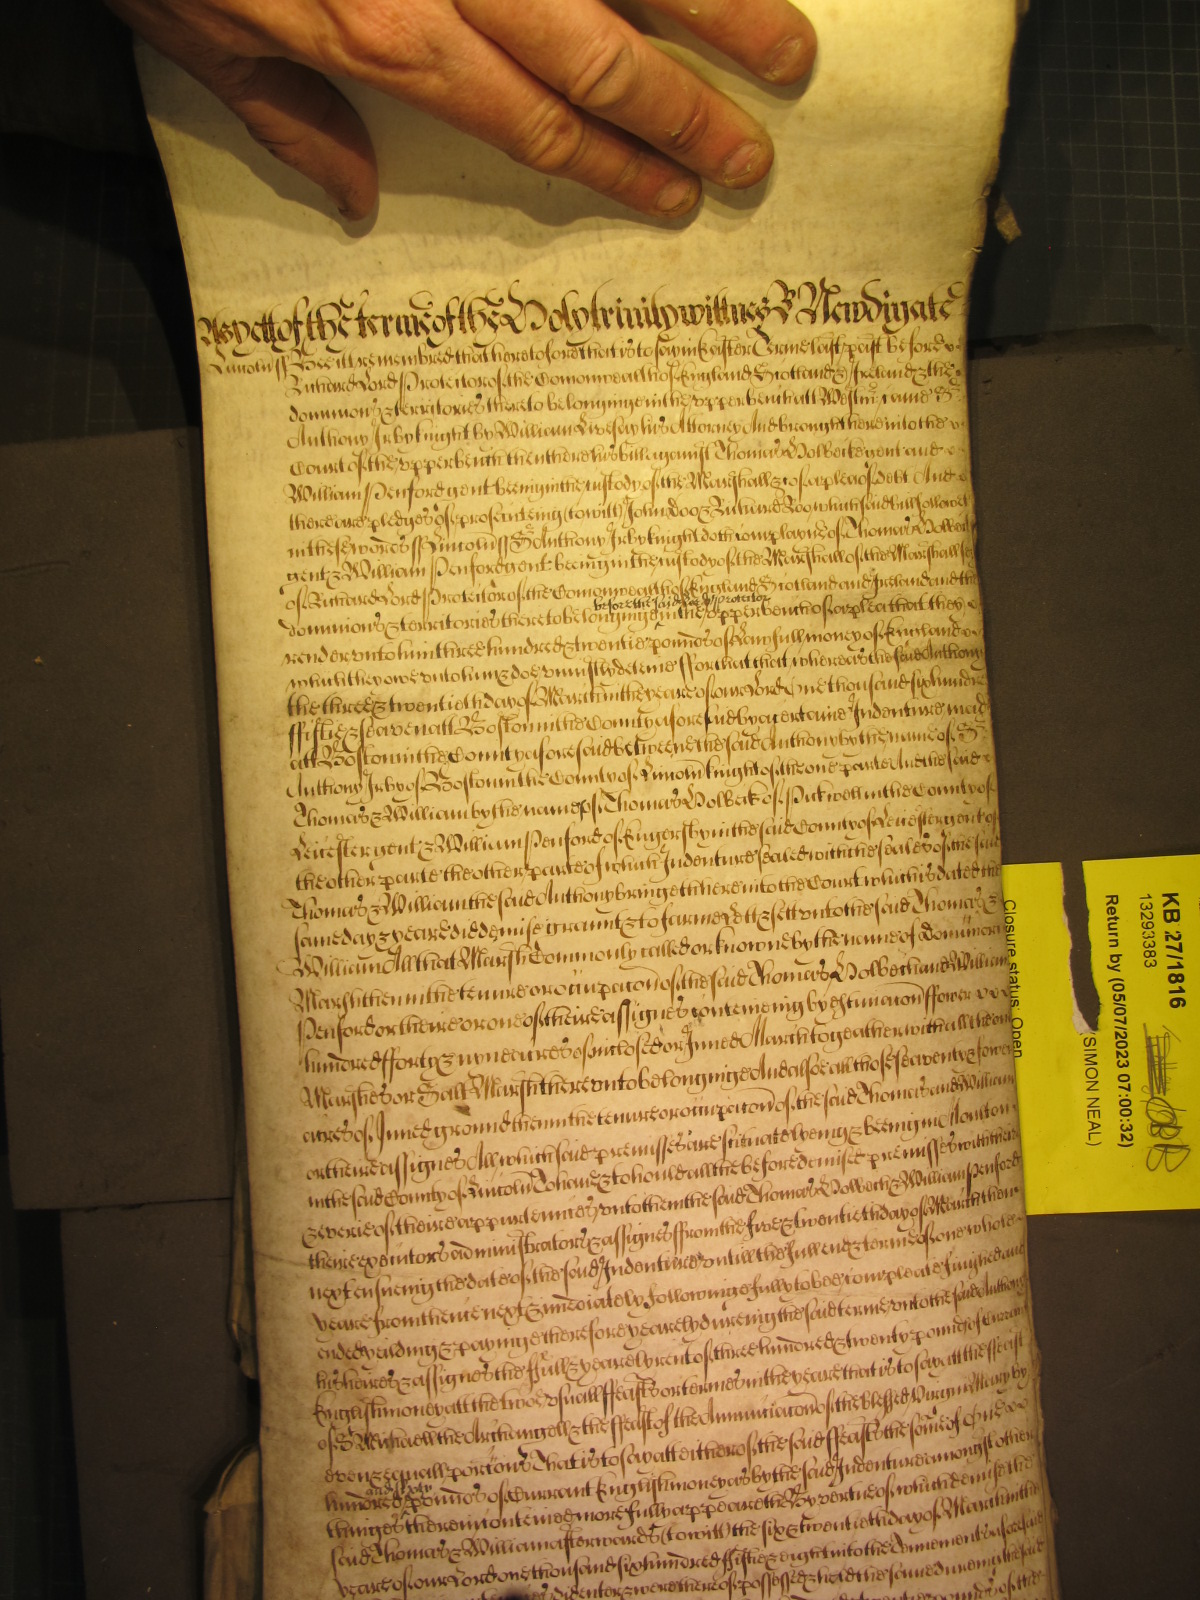 As yett of the terme of the Holy trinity wittnes R Newdigate
Lincoln ss Bee it remembred that heretofore that is to say in Easter Terme last past before
Richard Lord Protector of the Comonwealth of England Scotland & Ireland & the
dominions & territories thereto belonginge in the upper bench att Westmr came Sr
Anthony Irby knight by William Livesay his Attorney And brought here into the
Court of the upper bench then there his bill against Thomas Holbech gent and
William Penford gent beeing in the custody of the Marshall &c of a plea of debt And
there are pledges of prosecuteing (to witt) John Doo & Richard Roo which said bill followeth
in these words ss Lincoln ss Sr Anthony Irby knight doth complayne of Thomas Holbech
gent & William Penford gent beeing in the custody of the Marshall of the Marshallsey
of Richard Lord Protector of the Comonwealth of England Scotland and Ireland and the
before the said Lord Protector
dominions & territories thereto belonginge in the upper bench of a plea that they
render unto him three hundred & twentie pounds of lawfull money of England
which they owe unto him & doe uniustly deteine ffor that that whereas the said Anthony
the three & twentieth day of March in the yeare of our Lord One thousand six hundred
ffiftie & seaven att Boston in the County aforesaid by a certaine Indenture made
att Boston in the County aforesaid betweene the said Anthony by the name of Sr
Anthony Irby of Boston in the County of Lincoln knight of the one parte And the said
Thomas & William by the names of Thomas Holbech of Pickwell in the County of
Leicester gent & William Penford of Kugersby in the said County of Leicester gent of
the other parte the other parte of which Indenture sealed with the seales of the said
Thomas & William the said Anthony bringeth here into the Court which is dated the
same day & yeare did demise graunt & to farme lett & sett unto the said Thomas &
William All that Marsh Commonly called or knowne by the name of
Marsh then in the tenure or occupacon of the said Thomas Holbech and William
Penford or their or one of their assignes conteineing by estimacon ffower
hundred fforty & nyne acres of inclosed or Inned Marsh togeather with all the
Marshes or Salt Marsh thereunto belonginge And alsoe all those seaventy & fower
acres of Inned ground then in the tenure or occupacon of the said Thomas and William
or their assignes All which said premisses are scituate lyeing & beeing in Moulton
in the said County of Lincoln To have & to hould all the before demised premisses with their
& everie of their appurtennces unto them the said Thomas Holbech & William Penford
their executors administrators & assignes ffrom the five & twentieth day of March then
next ensueing the date of the said Indenture untill the full end & terme of one whole
yeare from thence next & imediately followinge fully to bee compleate finished and
ended yeilding & payinge therefore yearely dureing the said terme unto the said Anthony
his heires & assignes the full & yearely rent of three hundred & twenty pounds of Currant
English money att the two usuall ffeasts or termes in the yeare that is to say att the ffeast
of St Michaell the Archangell & the ffeast of the Annunciacon of the blessed Virgin Mary by
even & equall porcons That is to say att either of the said ffeasts the some of One
and sixty
hundred pounds of Currant English money as by the said Indenture amongst other
thinges therein conteined more fully appeareth By vertue of which demise the
said Thomas & William afterwards (to witt) the six & twentieth day of March in the
yeare of our Lord one thousand six hundred ffiftie & eight into the tenement aforesaid
entered & were thereof possessed & held the same dureing the said
KB 27/1816
13293383
Return by (05/07/2023 07:00:32)
(SIMON NEAL)
Closure status: Open